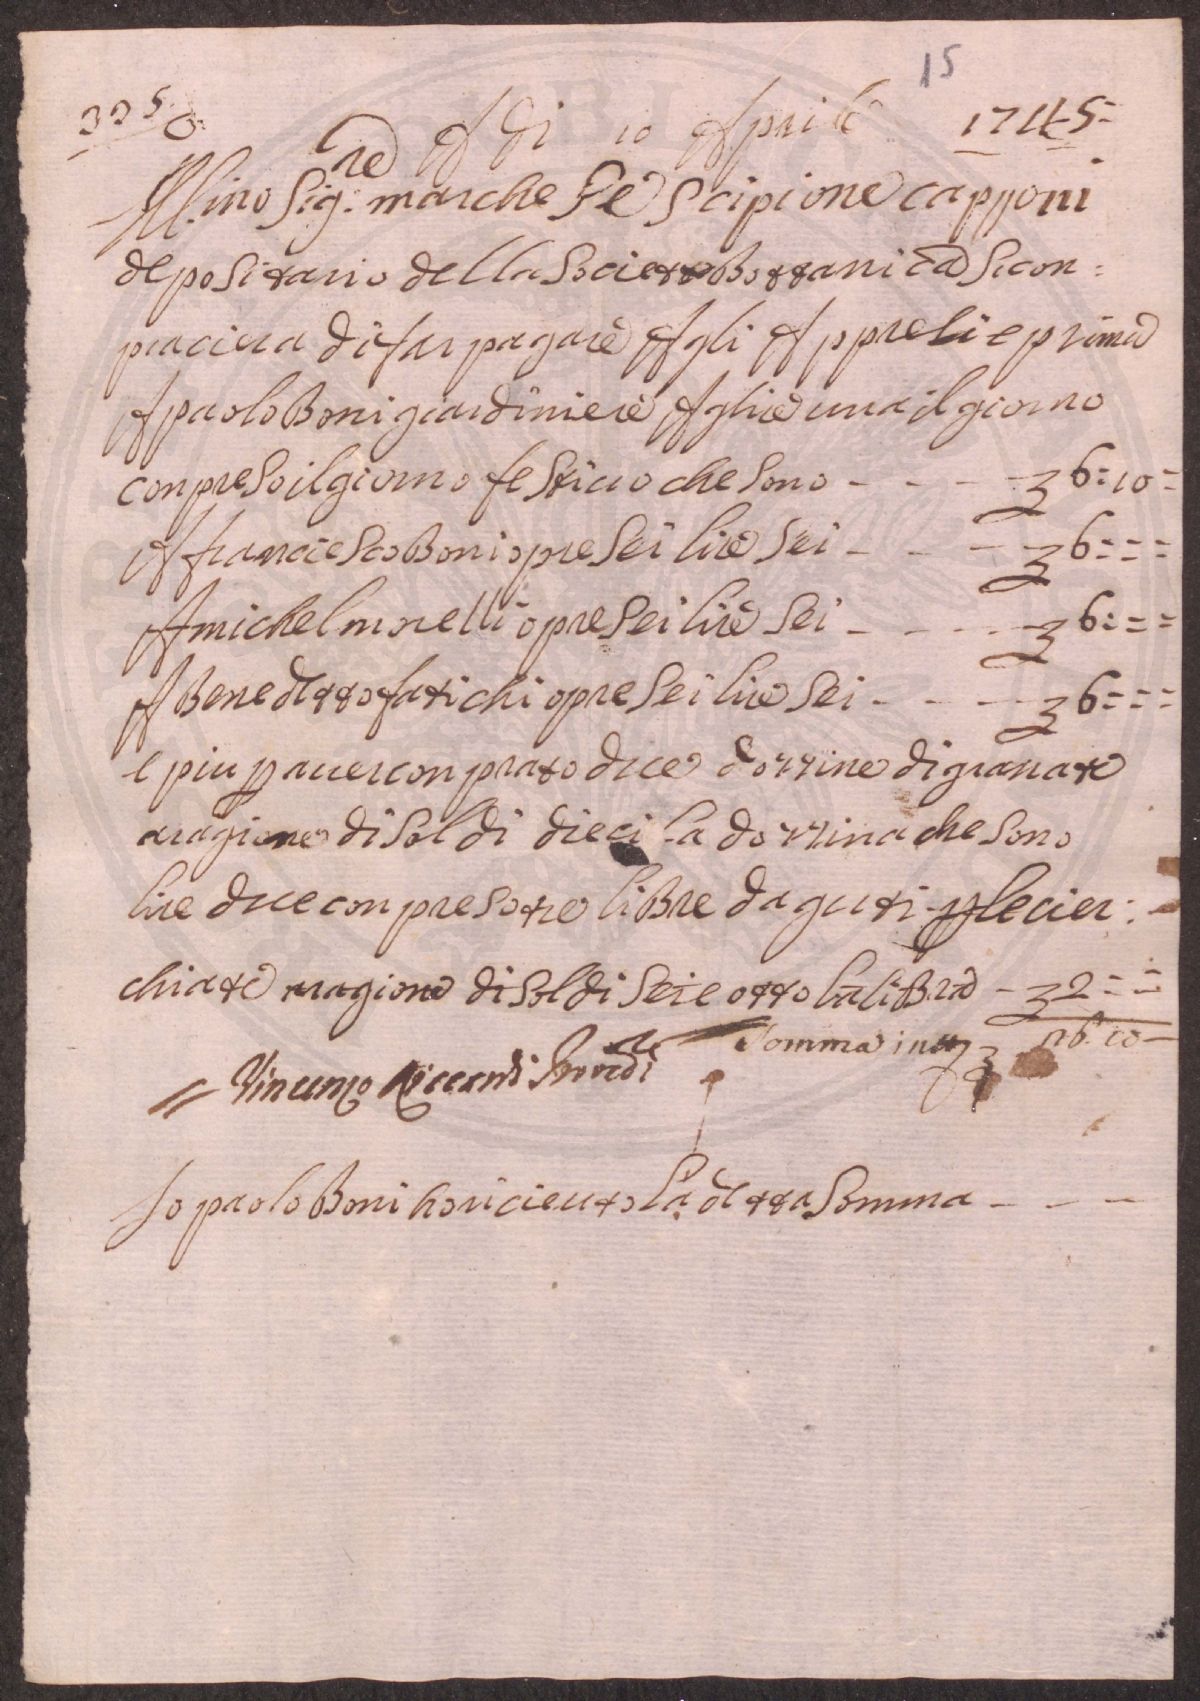 15
A di 10 Aprile 1745
Ill.mo Sig:re marchese Scipione capponi
depositario della Societa Bottanica Si con=
piacera di far pagare Agli Appresi e prima
A paolo Boni giardiniere A lire una il giorno
conpreso il giorno festiuo che sono - - - - 6:10=
A franciesco Boni opre Sei lire Sei - - - - 6:==
A michel morelli opre Sei lire Sei - - - - 6:==
A Benedetto fatichi opre Sei lire Sei - - - - 6===
e piu p auer conprato due dozzine di granate
aragione di Soldi dieci la dozzina che sono
lire due conpreso tre libre daguti p le cier:
chiate aragione di Soldi Sei e otto la libra - 2==
Somma in tto 26.10-
Vincenzo Riccardi Proved.
Io paolo Boni ho riceuuto la detta Somma - - -